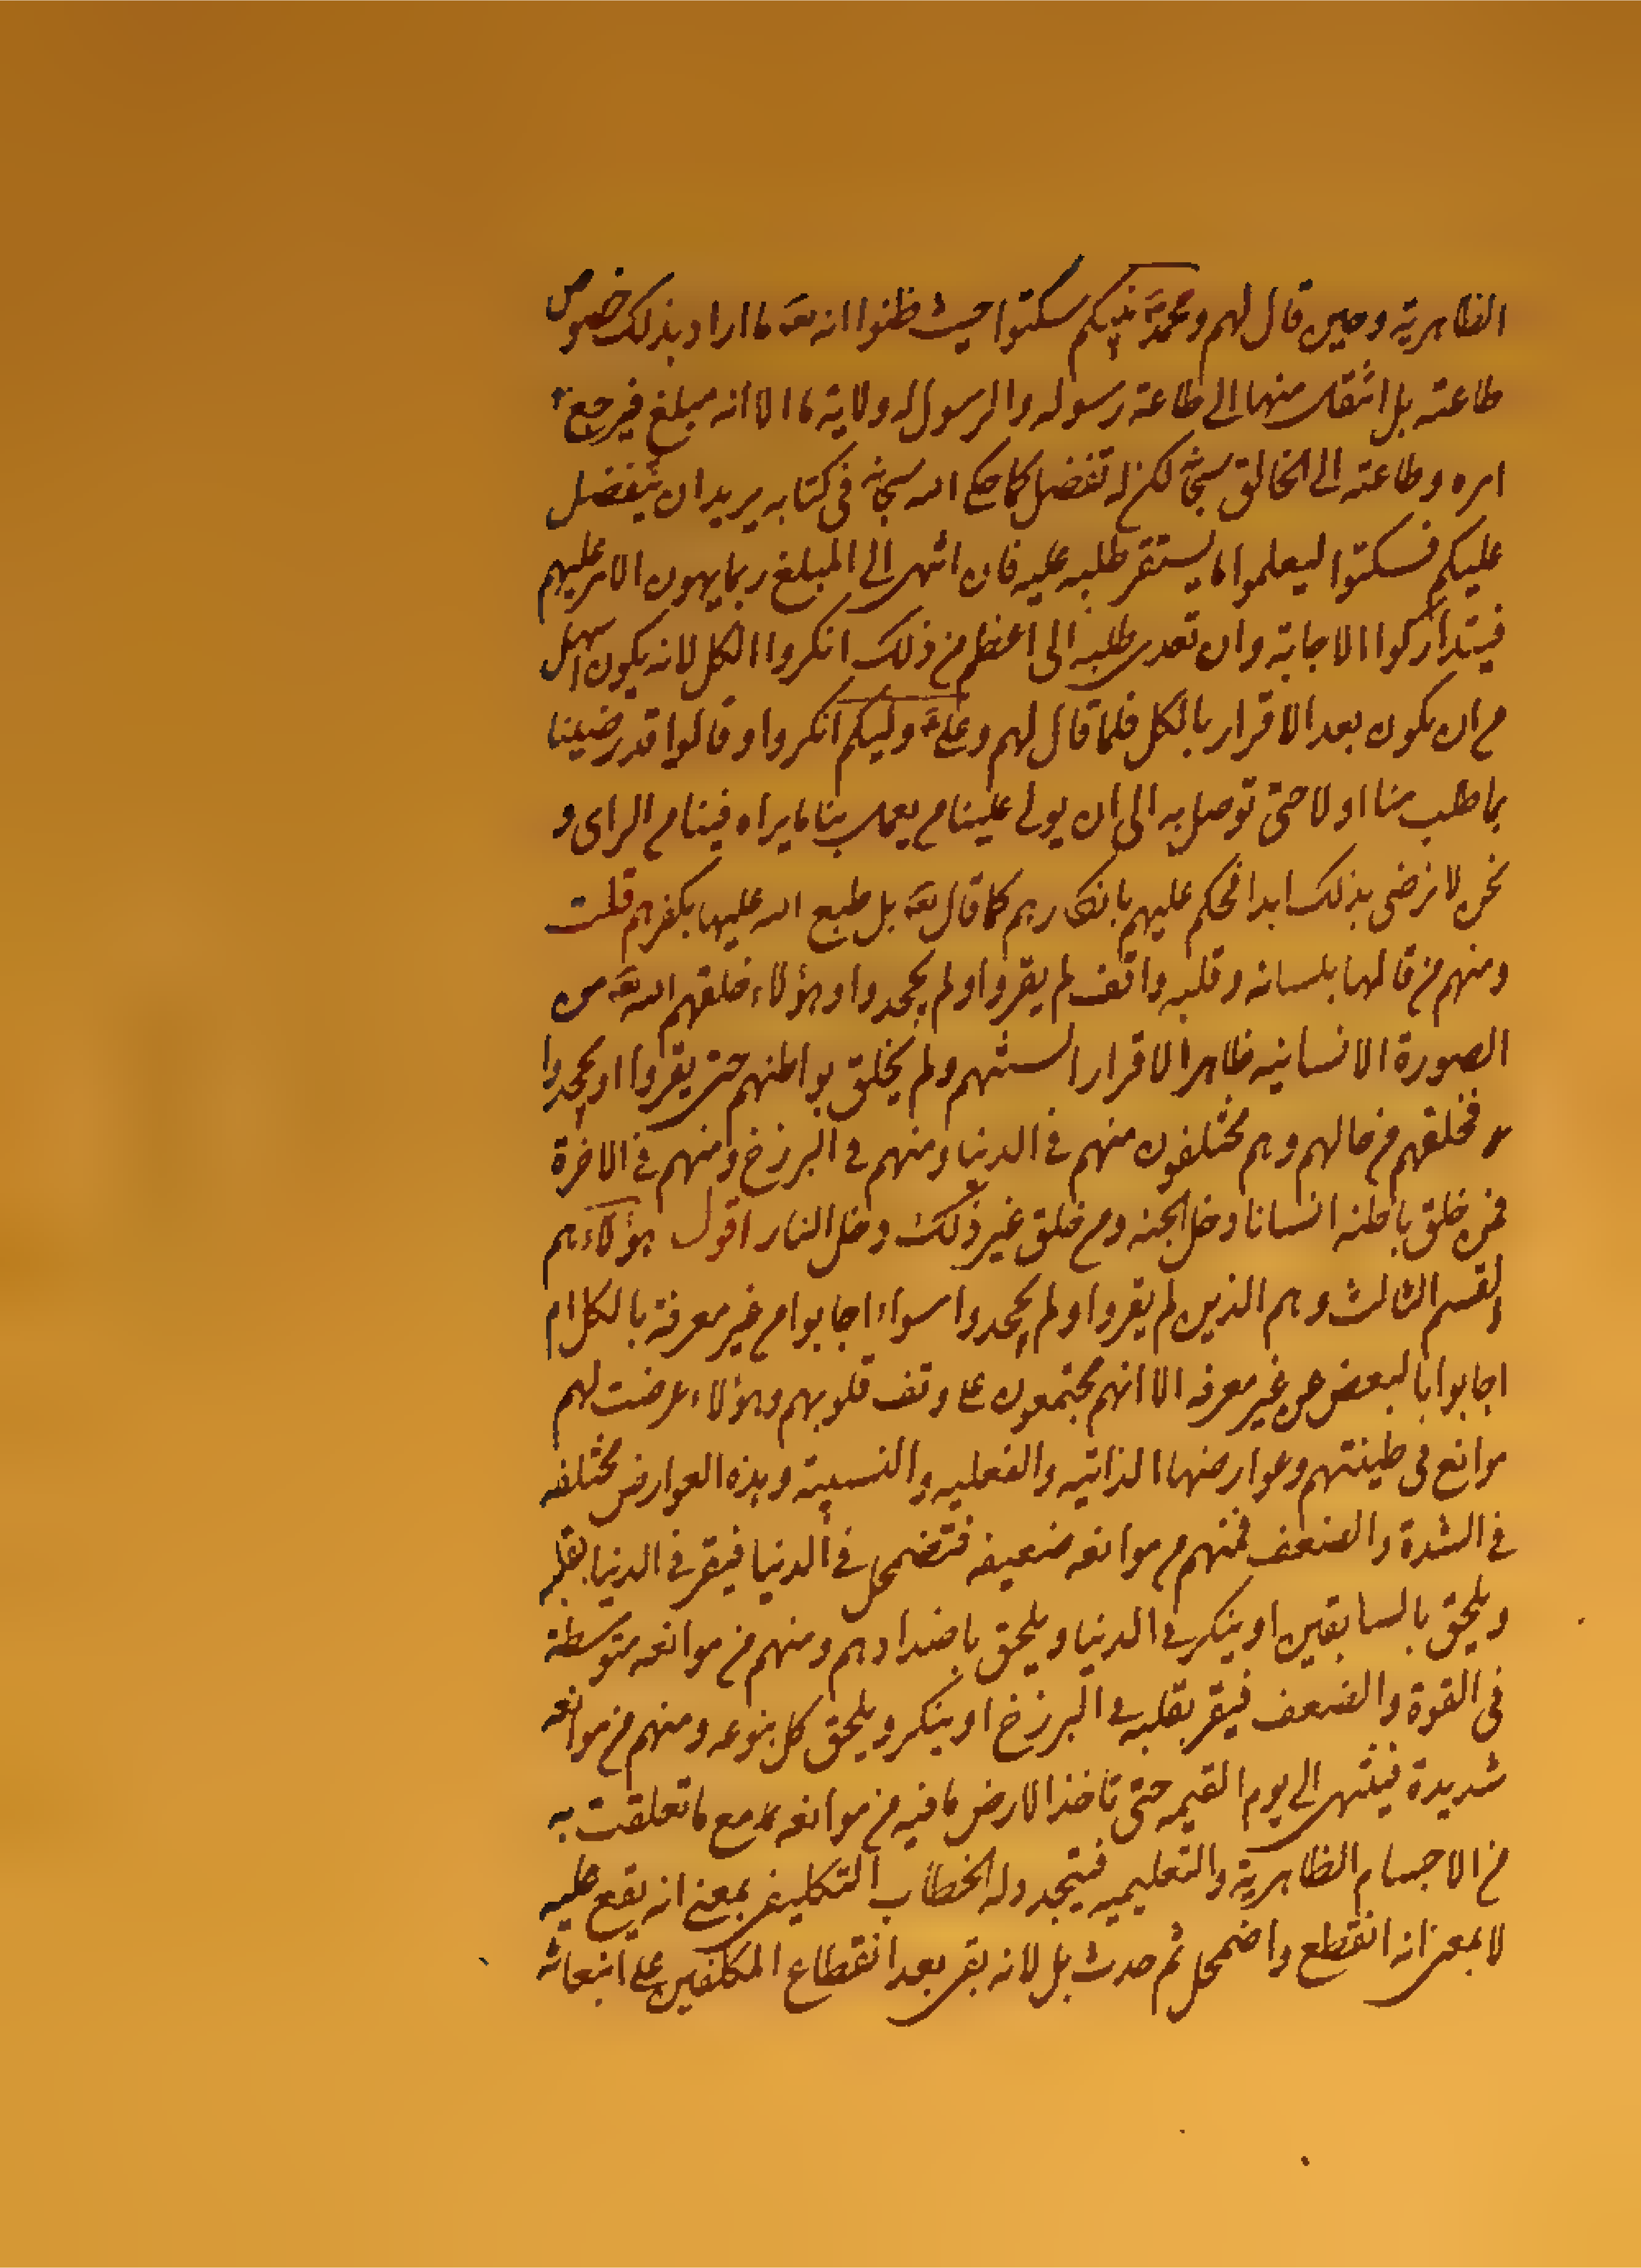 الظاهرية وحين قال لهم ومحمد نبيكم سكتوا حيث ظنوا انه تعه ما اراد بذلك خصوص
طاعته بل انتقل منها الى طاعة رسوله والرسول له ولاية ما الا انه مبلغ فيرجع
امره وطاعته الى الخالق سبحانه لكن له تفضل كما حكى الله سبحانه في كتابه يريد ان يتفضل
عليكم فسكتوا ليعلموا ما يستقر طلبه عليه فان انتهى الى المبلغ ربما يهون الامر عليهم
فيتداركوا الاجابة وان تعدى طلبه الى اعظم من ذلك انكروا الكل لانه يكون اسهل
من ان يكون بعد الاقرار بالكل فلما قال لهم وعلي وليكم انكروا وقالوا قد رضينا
بما طلب منا اولا حتى توصل به الى ان يولي علينا من يعمل بنا ما يراه فينا من الراى و
نحن لا نرضى بذلك ابدا فحكم عليهم بانكارهم كما قال تعه بل طبع الله عليها بكفرهم قلت
ومنهم من قالها بلسانه وقلبه واقف لم يقروا ولم يجحدوا وهؤلاء خلقهم الله تعه من
الصورة الانسانيه ظاهرا لاقرار السنتهم ولم يخلق بواطنهم حتى يقروا او يجحدوا
فخلقهم من حالهم وهم مختلفون منهم في الدنيا ومنهم في البرزخ ومنهم في الاخرة
فمن خلق باطنه انسانا دخل الجنه ومن خلق غير ذلك دخل النار اقول هؤلاء هم
القسم الثالث وهم الذين لم يقروا ولم يجحدوا سواء اجابوا من غير معرفة بالكل ام
اجابوا بالبعض عن غير معرفه الا انهم مجتمعون على وقف قلوبهم وهؤلاء عرضت لهم
موانع في طينتهم وعوارضها الذاتيه والفعليه والنسبية وهذه العوارض مختلفه
في الشدة والضعف فمنهم من موانعه ضعيفه فتضمحل في الدنيا فيقر في الدنيا بقلبه
ويلحق بالسابقين او ينكر في الدنيا ويلحق باضدادهم ومنهم من موانعه متوسطة
في القوة والضعف فيقر بقلبه في البرزخ او ينكر ويلحق كل بنوعه ومنهم من موانعه
شديدة فينتهى الى يوم القيمه حتى تاخذ الارض ما فيه من موانعه مع ما تعلقت به
من الاجسام الظاهرية والتعليميه فيتجدد له الخطاب التكليفى بمعنى انه يقع عليه
لا بمعنى انه انقطع واضمحل ثم حدث بل لانه بقى بعد انقطاع المكلفين على انبعاثه